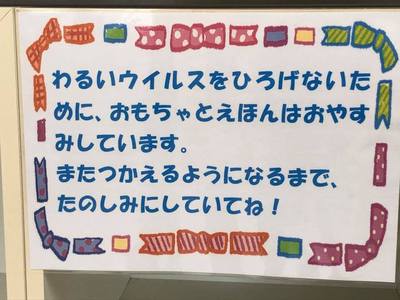 わるいウイルスをひろげないた
めに、おもちゃとえほんはおやす
みしています。
またつかえるようになるまで、
たのしみにしていてね！